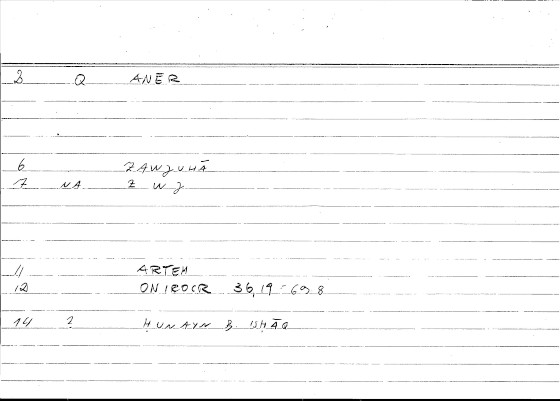 3 Q ANĒR
6 ZAWJUHĀ
7 NA Z W J
11 ARTEM
12 ONIROCR 36,19 = 69 8
14 ? ḤUNAYN B. ISḤĀQ